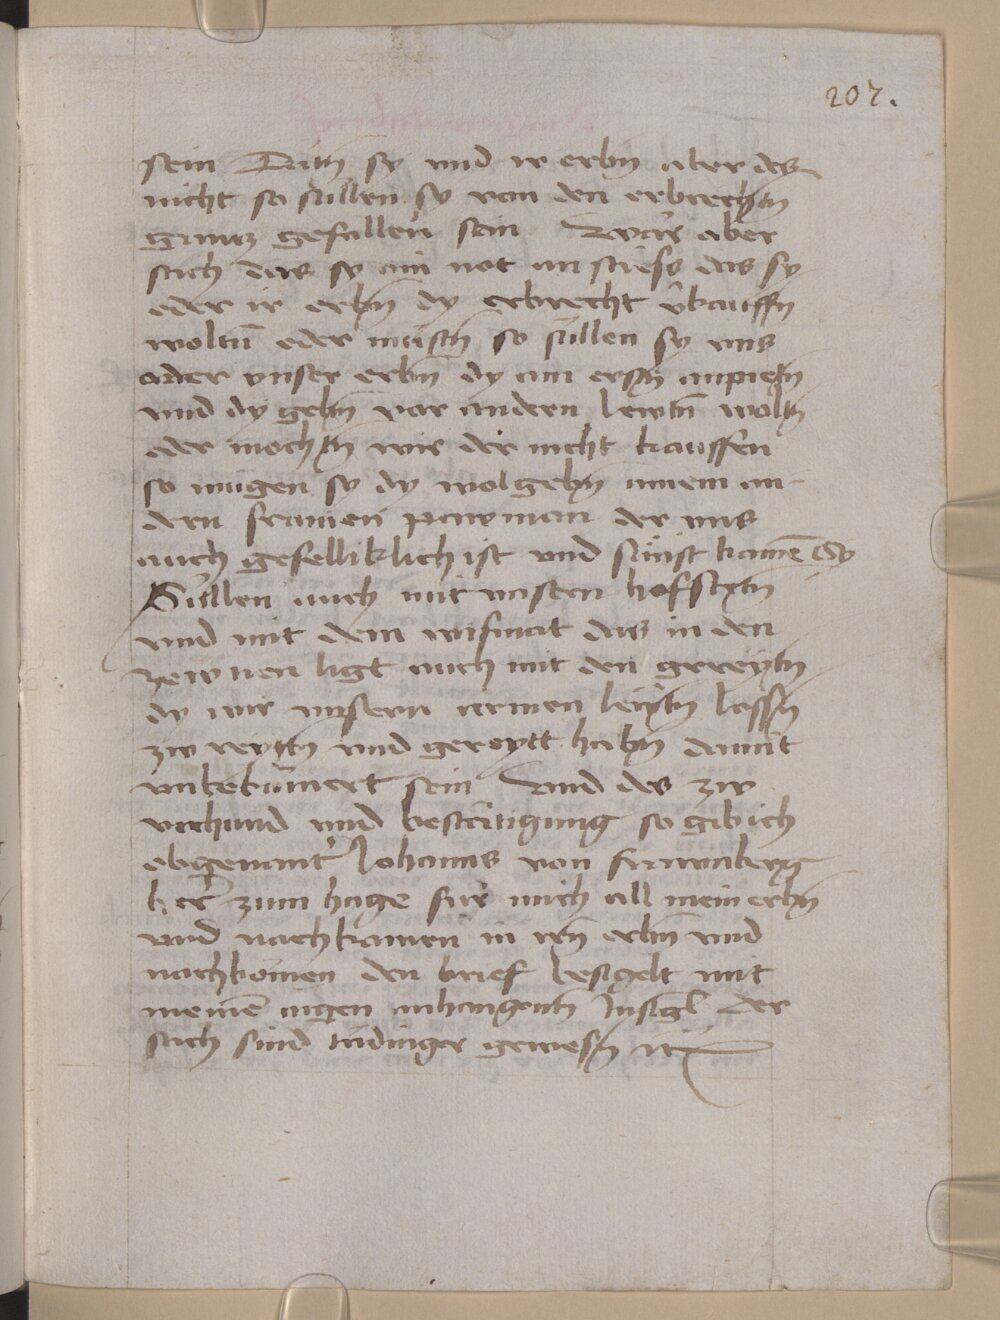 207.
sein Tätn sy vnd ir erbn aber des
nicht so sullen sy von den erbrechtn
gantz gefallen sein Wär aber
sach das sy ain not an stiess das sy
oder ir erbn dy erbrecht v̂kauffn
woltn̄ oder müstn so sullen sy vns
oder vnser erbn dy am erstn anpietn
vnd dy gebn vor andern lewtn̄ woltn
oder mochtn wir der nicht kauffen
so mugen sy dy wol gebn ainem an-
dern frumen pawman der vns
auch gefelliklich ist vnd sünst kainē Sy
Sullen auch mit vnsern hofstetn
vnd mit dem wismat das in den
zewnen ligt auch mit den gereytn
dy wir vnsern armen lewtn lassn
zw reytn vnd gereytt habn damit
vnbekümert sein Vnd des zw
vrchund vnd bestätigung so gib ich
obgenant' Johanns von frawnberg
her zum hage für mich all mein erbn
vnd nachkamen in irn̄ erbn̄ vnd
nachkömen den brief besigelt mit
meinē aigen anhangentn Insigl der
sach sind tädinger gewesn rc